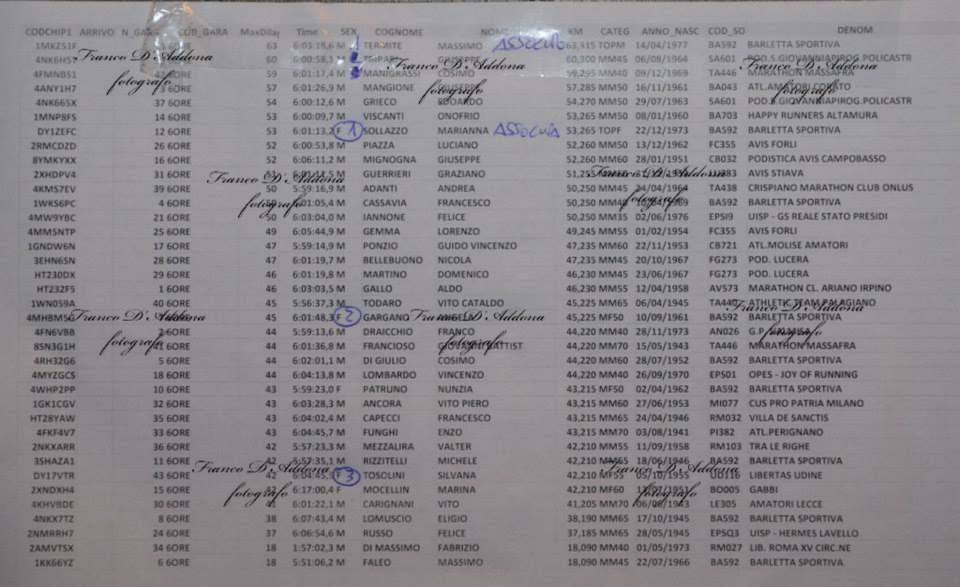 CODCHIP1 ARRIVO COD_GARA MaxDiLap Time SEX COGNOME KM CATEG ANNO_NASC COD_SO DENOM
1MKZS1F 63 6:03:19,6 M 1 TERMITE MASSIMO ASSOLUTO 63,315 TOPM 14/04/1977 BA592 BARLETTA SPORTIVA
60 6:00:58 60,300 MM45 06/08/1964 SA601 POD.S.GIOVANNIAPIROG.POLICASTR
4FMNBS1 6ORE 59 6:01:17,4 M MANIGRASSI COSIMO 59,295 MM40 09/12/1969 TA446 MARATHON MASSAFRA
4ANY1H7 6ORE 57 6:01:26,9 M MANGIONE GIUSEPPE 57,285 MM50 16/11/1961 BA043 ATL.AMATORI CORATO
4NK665X 37 6ORE 54 6:00:12,6 M GRIECO EDOARDO 54,270 MM50 29/07/1963 SA601 POD.S.GIOVANNIAPIROG.POLICASTR
1MNP8FS 14 6ORE 53 6:00:09,7 M VISCANTI ONOFRIO 53,265 MM50 08/01/1960 BA703 HAPPY RUNNERS ALTAMURA
DY1ZEFC 12 6ORE 53 6:01:13,2 F 1 SOLLAZZO MARIANNA ASSOLUTA 53,265 TOPF 22/12/1973 BA592 BARLETTA SPORTIVA
2RMCDZD 26 6ORE 52 6:00:53,8 M PIAZZA LUCIANO 52,260 MM50 13/12/1962 FC355 AVIS FORLI
8YMKYXX 16 6ORE 52 6:06:11,2 M MIGNOGNA GIUSEPPE 52,260 MM60 28/01/1951 CB032 PODISTICA AVIS CAMPOBASSO
2XHDPV4 31 6ORE M GUERRIERI GRAZIANO AVIS STIAVA
4KMS7EV 39 6ORE 50 5:59:16,9 M ADANTI ANDREA 50,250 MM45 24/04/1964 TA438 CRISPIANO MARATHON CLUB ONLUS
1WKS6PC 4 6ORE M CASSAVIA FRANCESCO 50,250 BA592 BARLETTA SPORTIVA
4MW9YBC 21 6ORE 50 6:03:04,0 M IANNONE FELICE 50,250 MM35 02/06/1976 EPSI9 UISP - GS REALE STATO PRESIDI
4MM5NTP 25 6ORE 49 6:05:44,9 M GEMMA LORENZO 49,245 MM55 01/02/1954 FC355 AVIS FORLI
1GNDW6N 17 6ORE 47 5:59:14,9 M PONZIO GUIDO VINCENZO 47,235 MM60 22/11/1953 CB721 ATL.MOLISE AMATORI
3EHN6SN 28 6ORE 47 6:01:19,7 M BELLEBUONO NICOLA 47,235 MM45 20/10/1967 FG273 POD. LUCERA
HT230DX 29 6ORE 46 6:01:19,8 M MARTINO DOMENICO 46,230 MM45 23/06/1967 FG273 POD. LUCERA
HT232F5 1 6ORE 46 6:03:03,5 M GALLO ALDO 46,230 MM55 12/04/1958 AV573 MARATHON CL. ARIANO IRPINO
1WN059A 40 6ORE 45 5:56:37,3 M TODARO VITO CATALDO 45,225 MM45 06/04/1965 ATHLETIC TEAM PALAGIANO
6ORE 45 6:01:48,3 F 2 GARGANO ANGELA 45,225 MF50 10/09/1961 BA592 BARLETTA SPORTIVA
4FN6VBB 2 6ORE 44 5:59:13,6 M DRAICCHIO FRANCO 44,220 MM40 28/11/1973 AN026
8SN3G1H 6ORE 44 6:01:36,8 M FRANCIOSO 44,220 MM70 15/05/1943 TA446 MARATHON MASSAFRA
4RH32G6 5 6ORE 44 6:02:01,1 M DI GIULIO COSIMO 44,220 MM60 28/07/1952 BA592 BARLETTA SPORTIVA
4MYZGCS 18 6ORE 44 6:04:13,8 M LOMBARDO VINCENZO 44,220 MM40 26/09/1970 EPS01 OPES - JOY OF RUNNING
4WHP2PP 10 6ORE 43 5:59:23,0 F PATRUNO NUNZIA 43,215 MF50 02/04/1962 BA592 BARLETTA SPORTIVA
1GK1CGV 32 6ORE 43 6:03:28,3 M ANCORA VITO PIERO 43,215 MM60 27/06/1953 MI077 CUS PRO PATRIA MILANO
HT28YAW 35 6ORE 43 6:04:02,4 M CAPECCI FRANCESCO 43,215 MM65 24/04/1946 RM032 VILLA DE SANCTIS
4FKF4V7 33 6ORE 43 6:04:45,7 M FUNGHI ENZO 43,215 MM70 03/08/1941 PI382 ATL.PERIGNANO
2NKXARR 36 6ORE 42 5:57:23,3 M MEZZALIRA VALTER 42,210 MM55 11/09/1958 RM103 TRA LE RIGHE
3SHAZA1 11 6ORE 42 5:57:35,1 M RIZZITELLI MICHELE 42,210 MM65 18/06/1946 BA592 BARLETTA SPORTIVA
DY17VTR 43 6ORE 42 6:04:45,5 F 3 TOSOLINI SILVANA 42,210 MF55 05/10/1955 UD116 LIBERTAS UDINE
2XNDXH4 15 6ORE 42 6:17:00,4 F MOCELLIN MARINA 42,210 MF60 BO005 GABBI
4KHVBDE 30 6ORE 41 6:01:22,1 M CARIGNANI VITO 41,205 MM70 06/08/1943 LE305 AMATORI LECCE
4NKX7TZ 8 6ORE 38 6:07:43,4 M LOMUSCIO ELIGIO 38,190 MM65 17/10/1945 BA592 BARLETTA SPORTIVA
2NMRRH7 24 6ORE 37 6:06:54,6 M RUSSO FELICE 37,185 MM65 28/10/1945 EPSQ3 UISP - HERMES LAVELLO
2AMVTSX 34 6ORE 18 1:57:02,3 M DI MASSIMO FABRIZIO 18,090 MM40 01/05/1973 RM027 LIB. ROMA XV CIRC.NE
1KK66YZ 6 6ORE 18 5:51:06,2 M FALEO MASSIMO 18,090 MM45 22/07/1966 BA592 BARLETTA SPORTIVA
Franco D'Addona
fotografo
Franco D'Addona
fotografo
Franco D'Addona
fotografo
Franco D'Addona
fotografo
Franco D'Addona
fotografo
Franco D'Addona
fotografo
Franco D'Addona
fotografo
Franco D'Addona
fotografo
Franco D'Addona
fotografo
Franco D'Addona
fotografo